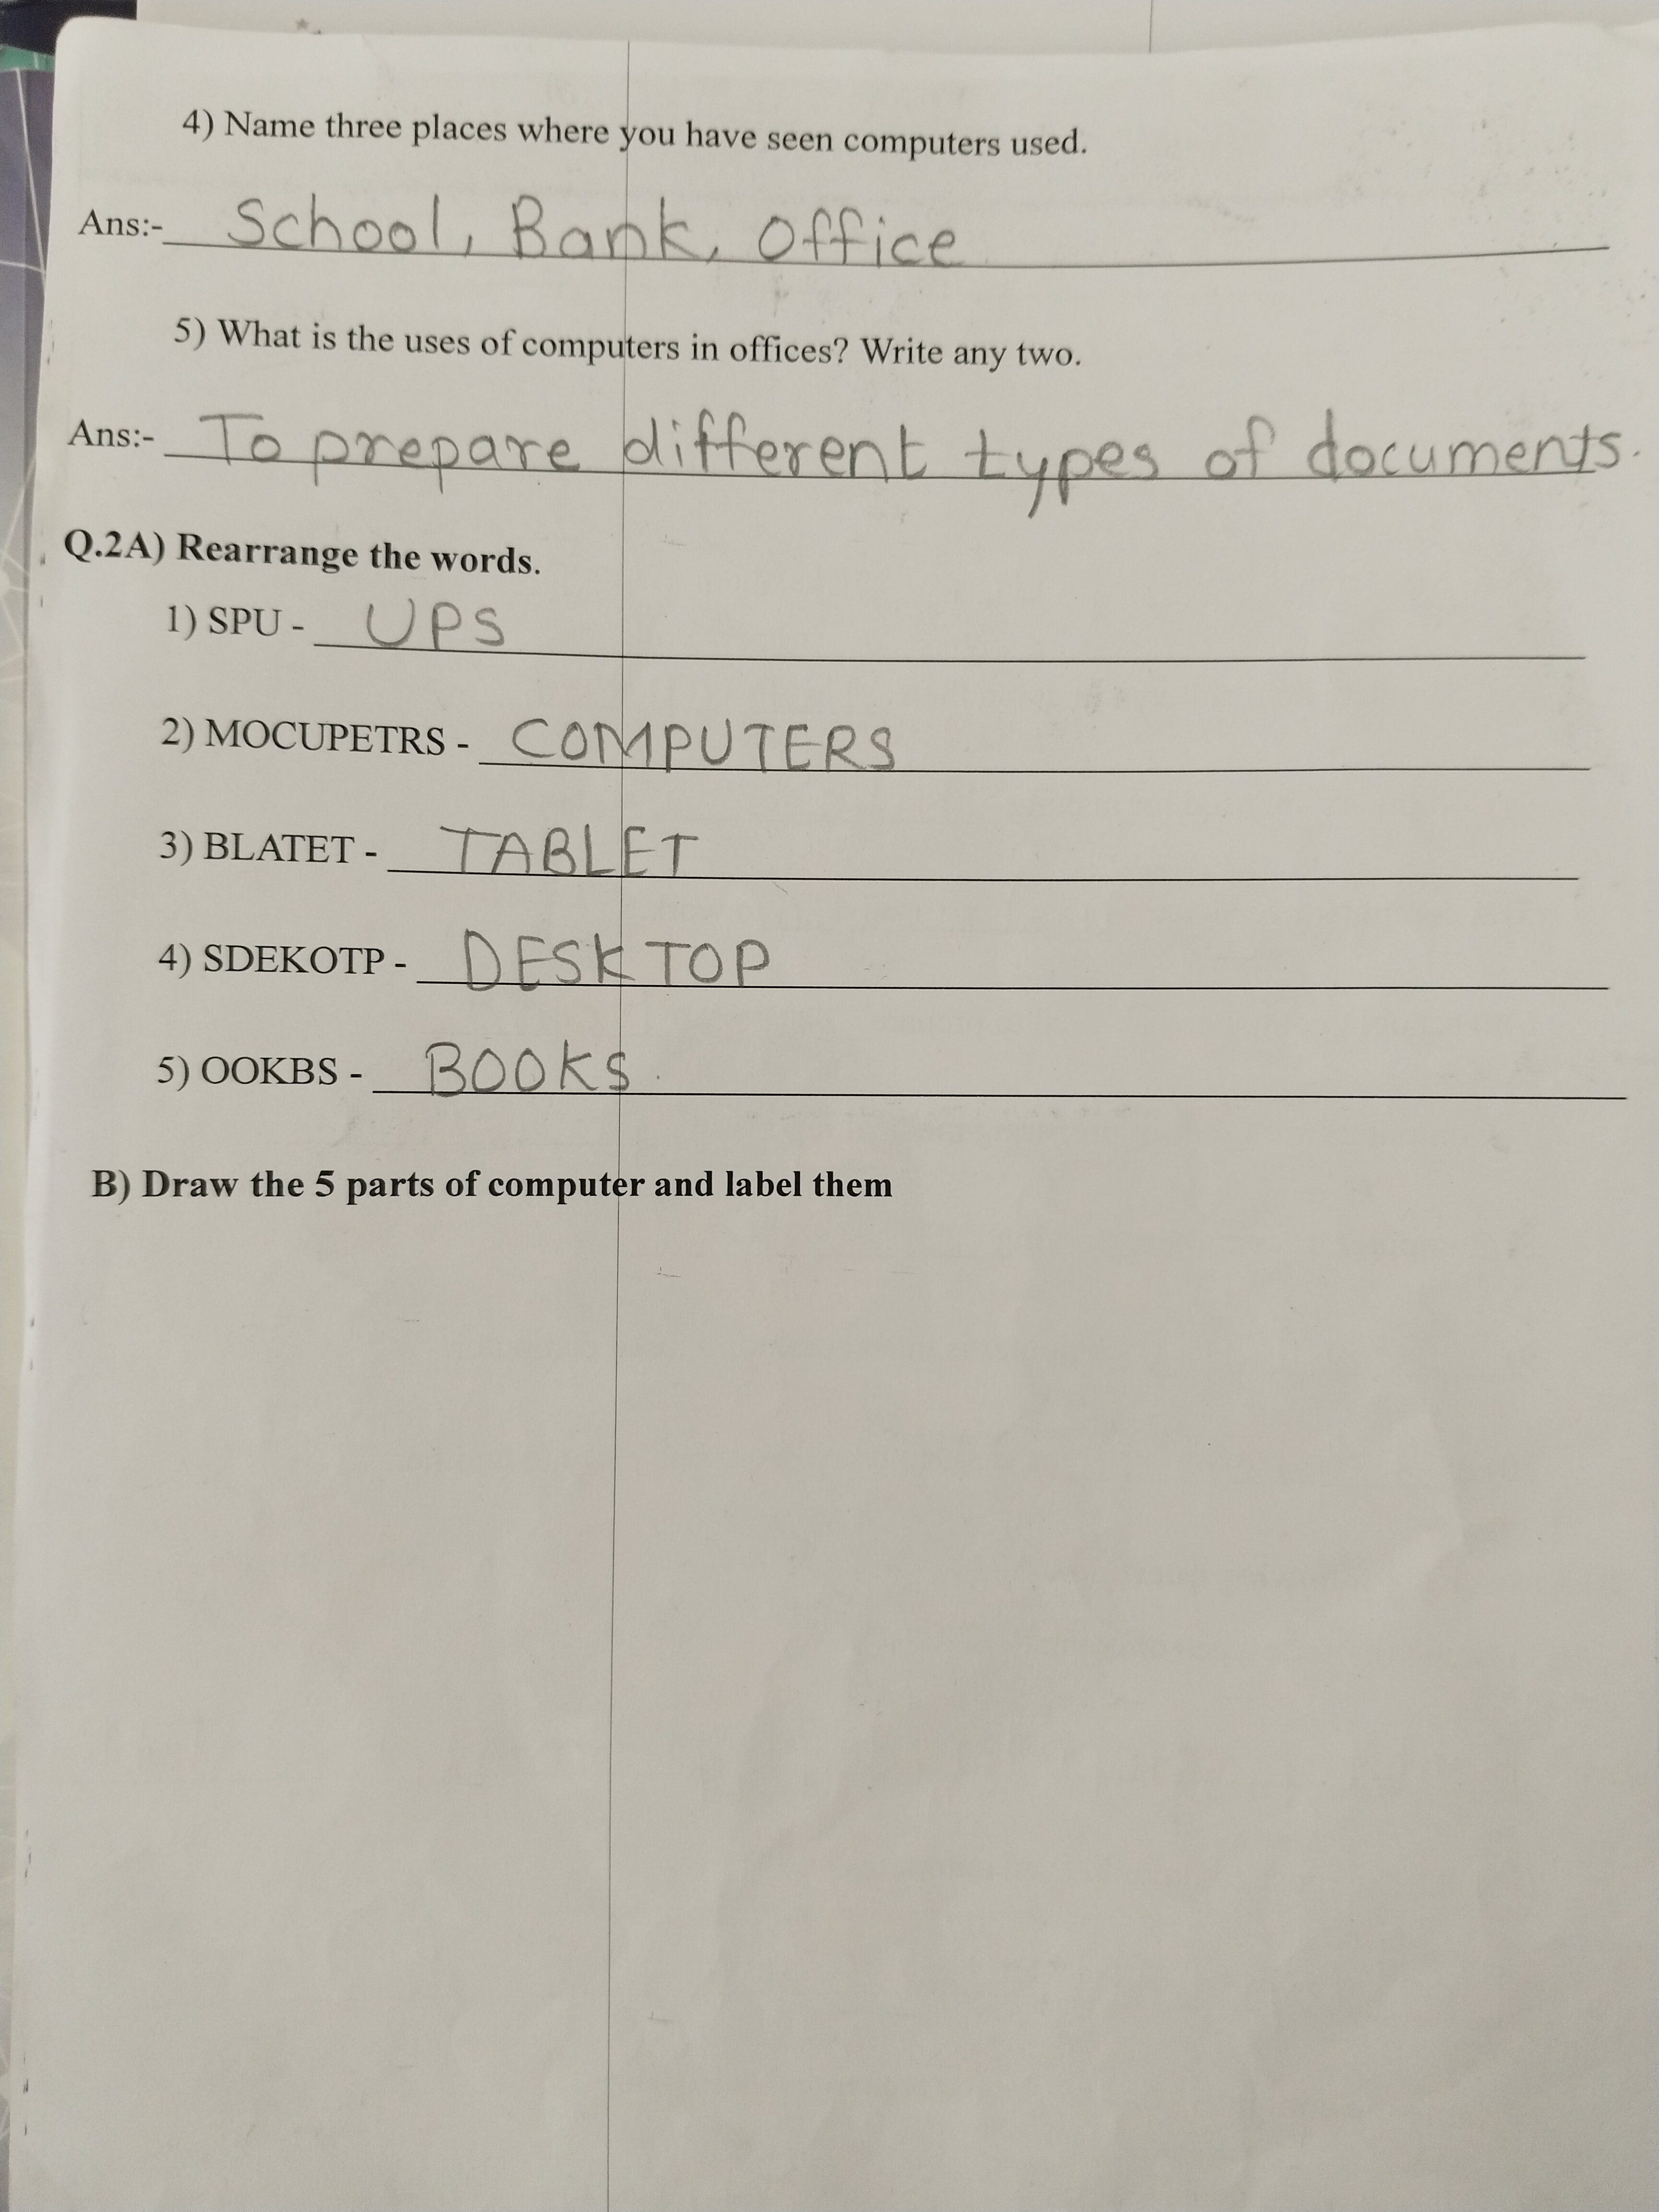 4) Name three places where you have seen computers used.
Ans:- School, Bank, Office
5) What is the uses of computers in offices? Write any two.
Ans:- To prepare different types of documents.
Q.2A) Rearrange the words.
1) SPU - UPS
2) MOCUPETRS - COMPUTERS
3) BLATET - TABLET
4) SDEKOTP - DESKTOP
5) OOKBS - BOOKS
B) Draw the 5 parts of computer and label them